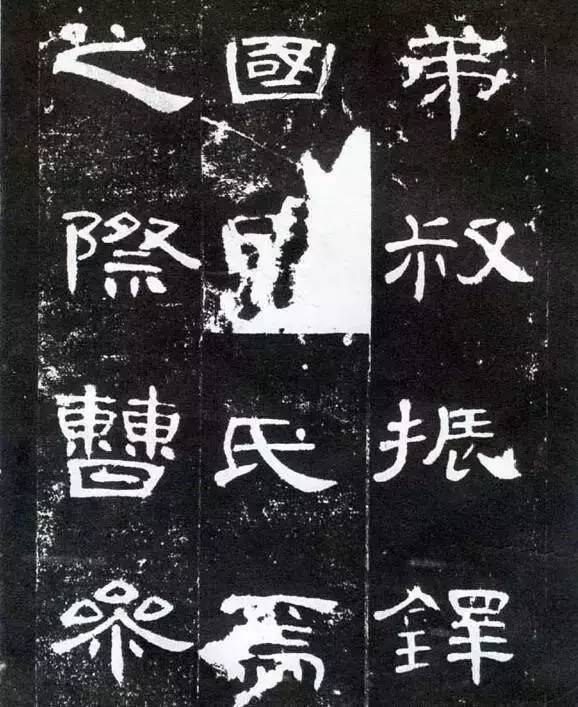 弟叔振鐸
國氏焉
之際曹參